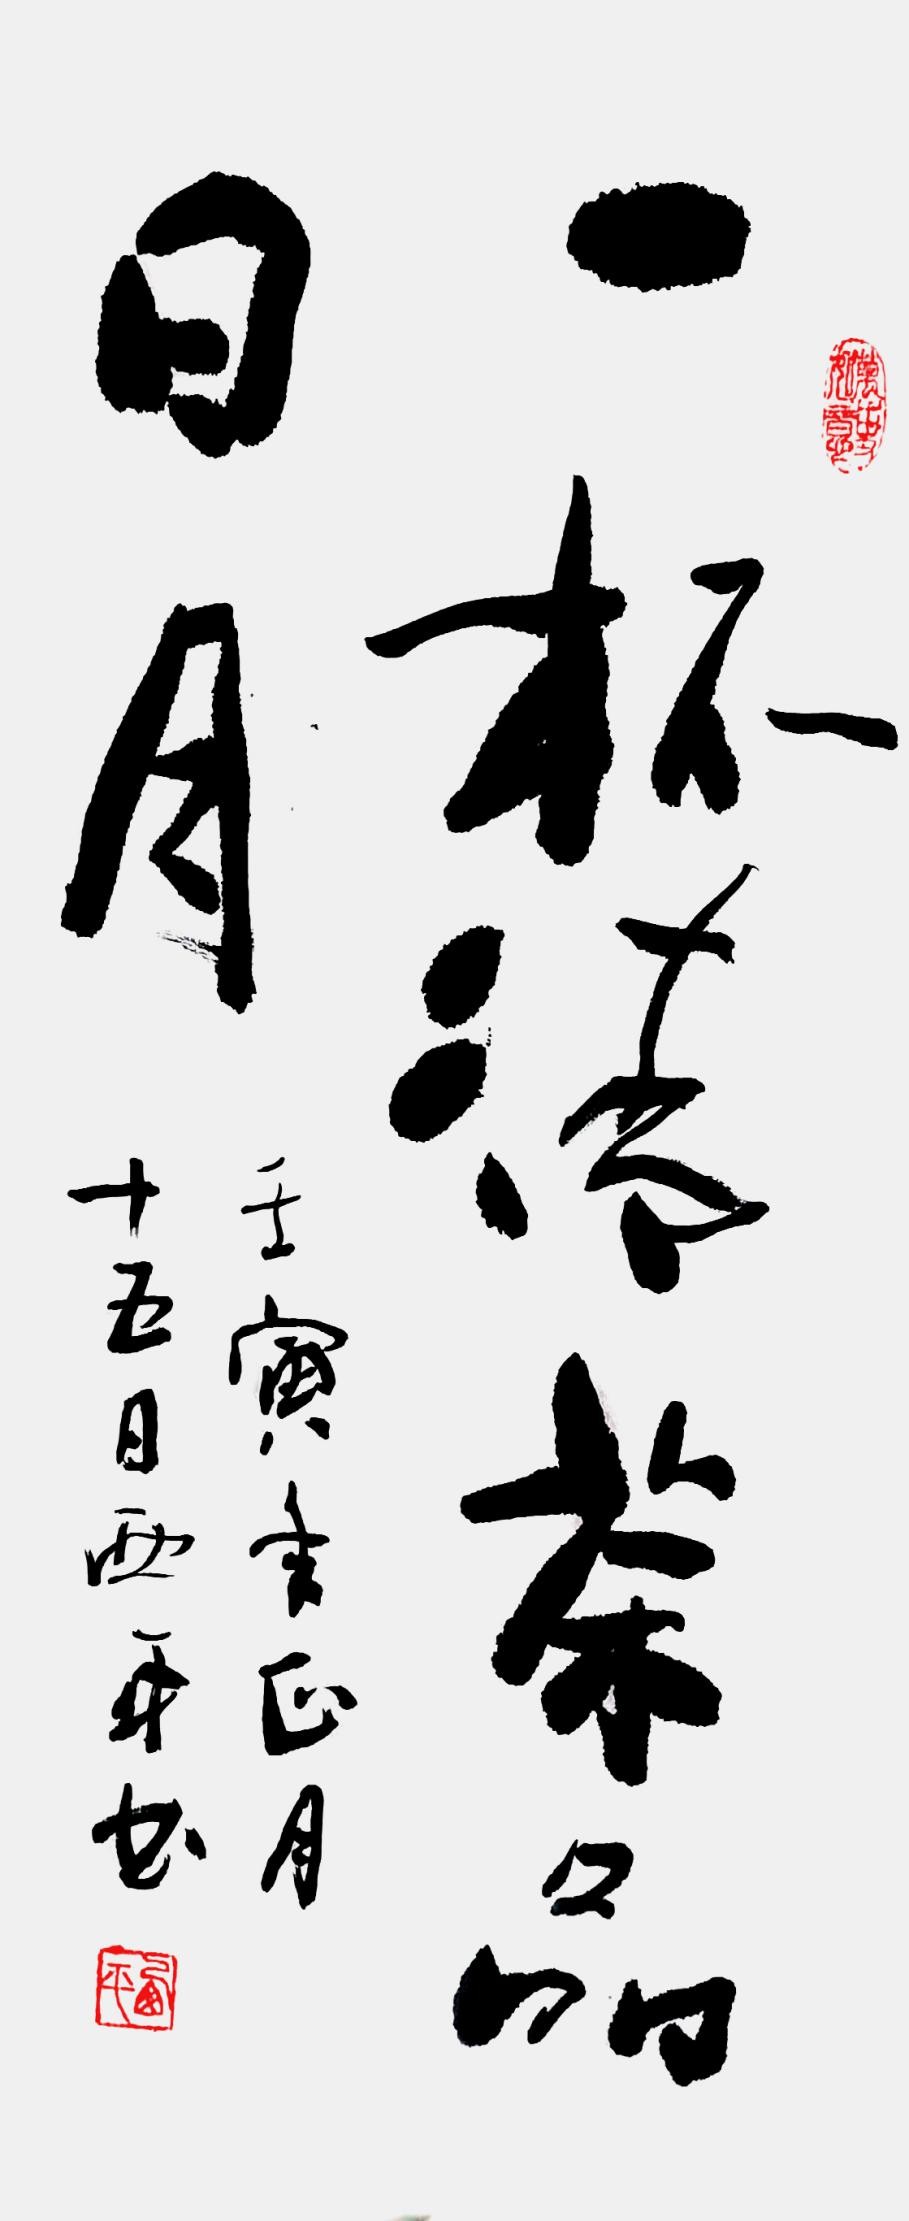 一杯清茶品
日月
壬寅年正月
十五日西平书
萬事如意